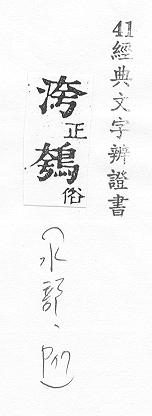 41經典文字辨證書
洿正
俗
（水部、P17）